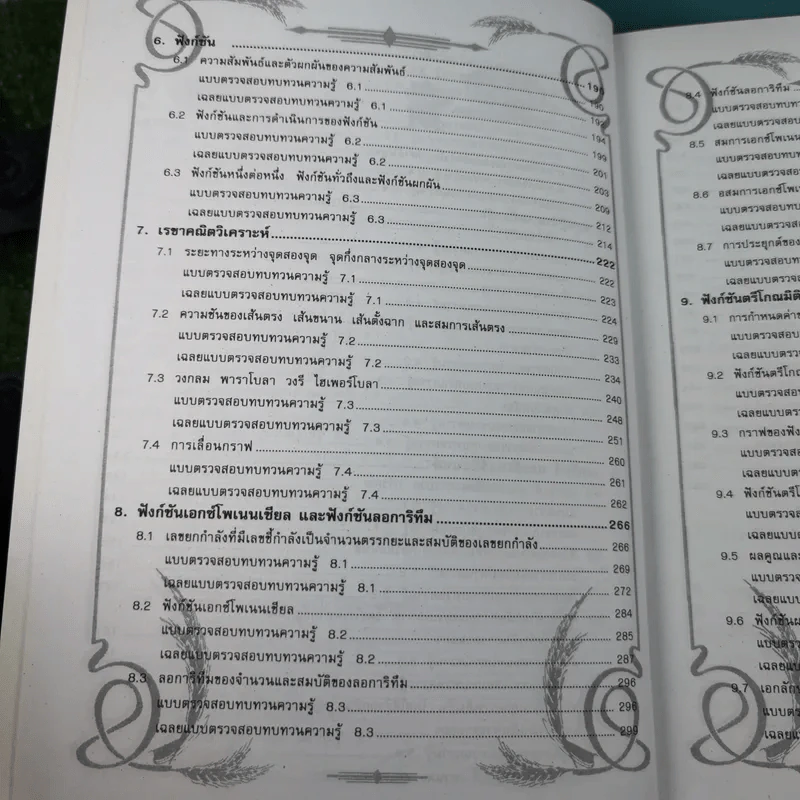 6. ฟังก์ชัน
6.1 ความสัมพันธ์และตัวผกผันของความสัมพันธ์ 190
แบบตรวจสอบทบทวนความรู้ 6.1 192
เฉลยแบบตรวจสอบทบทวนความรู้ 6.1 194
6.2 ฟังก์ชันและการดำเนินการของฟังก์ชัน 199
แบบตรวจสอบทบทวนความรู้ 6.2 201
เฉลยแบบตรวจสอบทบทวนความรู้ 6.2 203
6.3 ฟังก์ชันหนึ่งต่อหนึ่ง ฟังก์ชันทั่วถึงและฟังก์ชันผกผัน 209
แบบตรวจสอบทบทวนความรู้ 6.3 212
เฉลยแบบตรวจสอบทบทวนความรู้ 6.3 214
7. เรขาคณิตวิเคราะห์ 222
7.1 ระยะทางระหว่างจุดสองจุด จุดกึ่งกลางระหว่างจุดสองจุด 222
แบบตรวจสอบทบทวนความรู้ 7.1 223
เฉลยแบบตรวจสอบทบทวนความรู้ 7.1 224
7.2 ความชันของเส้นตรง เส้นขนาน เส้นตั้งฉาก และสมการเส้นตรง 229
แบบตรวจสอบทบทวนความรู้ 7.2 233
เฉลยแบบตรวจสอบทบทวนความรู้ 7.2 234
7.3 วงกลม พาราโบลา วงรี ไฮเพอร์โบลา 240
แบบตรวจสอบทบทวนความรู้ 7.3 248
เฉลยแบบตรวจสอบทบทวนความรู้ 7.3 251
7.4 การเลื่อนกราฟ 260
แบบตรวจสอบทบทวนความรู้ 7.4 261
เฉลยแบบตรวจสอบทบทวนความรู้ 7.4 262
8. ฟังก์ชันเอกซ์โพเนนเชียล และฟังก์ชันลอการิทึม 266
8.1 เลขยกกำลังที่มีเลขชี้กำลังเป็นจำนวนตรรกยะและสมบัติของเลขยกกำลัง 266
แบบตรวจสอบทบทวนความรู้ 8.1 269
เฉลยแบบตรวจสอบทบทวนความรู้ 8.1 272
8.2 ฟังก์ชันเอกซ์โพเนนเชียล 284
แบบตรวจสอบทบทวนความรู้ 8.2 285
เฉลยแบบตรวจสอบทบทวนความรู้ 8.2 287
8.3 ลอการิทึมของจำนวนและสมบัติของลอการิทึม 296
แบบตรวจสอบทบทวนความรู้ 8.3 296
เฉลยแบบตรวจสอบทบทวนความรู้ 8.3 299
8.4 ฟังก์ชันลอการิทึม
แบบตรวจสอบทบ
เฉลยแบบตรวจ
8.5 สมการเอกซ์โพเนน
แบบตรวจสอบท
เฉลยแบบตรวจ
8.6 อสมการเอกซ์โพเ
แบบตรวจสอบท
เฉลยแบบตรว
8.7 การประยุกต์ของ
แบบตรวจสอบ
เฉลยแบบตร
9. ฟังก์ชันตรีโกณมิติ
9.1 การกำหนดค่า
แบบตรวจส
เฉลยแบบต
9.2 ฟังก์ชันตรีโก
แบบตรวจส
เฉลยแบบ
9.3 กราฟของฟัง
แบบตรวจ
เฉลยแบบ
9.4 ฟังก์ชันตรีโ
แบบตรวจ
เฉลยแบบ
9.5 ผลคูณและ
แบบตรว
เฉลยแบ
9.6 ฟังก์ชันผ
แบบตรว
เฉลยแ
9.7 เอกลัก
แบบต
เฉลย